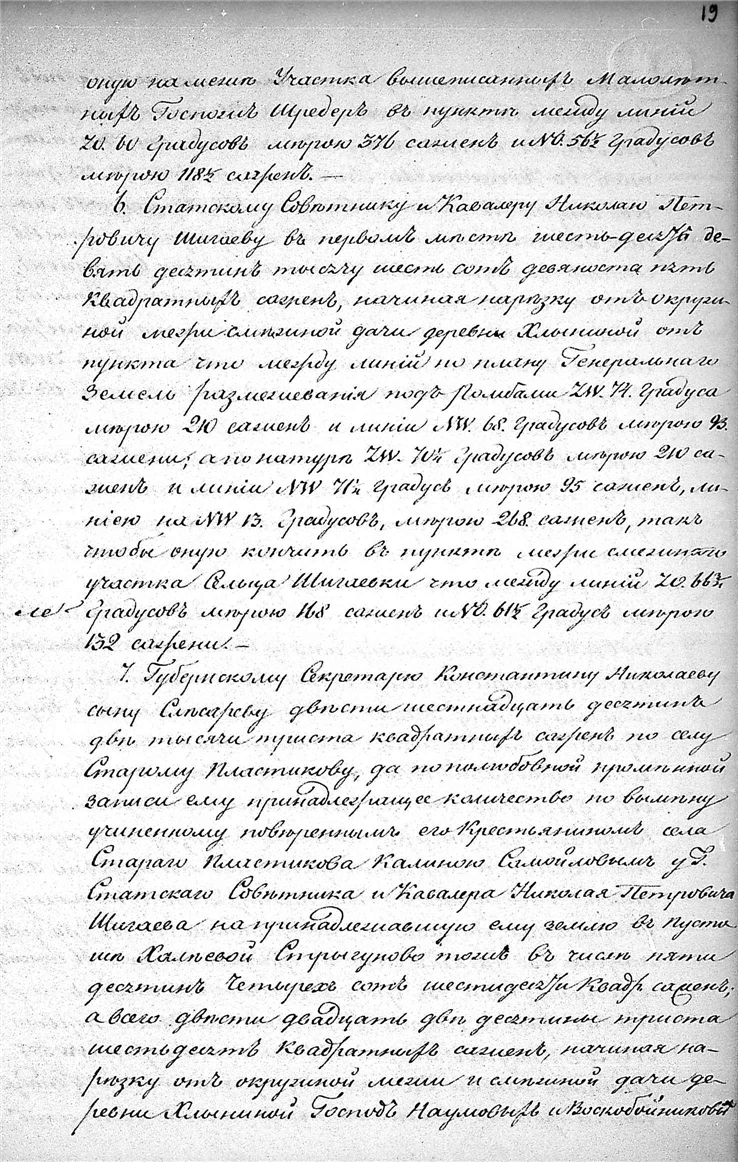 19
оную на межѣ Участка вышеписанныхъ Малолѣт-
ныхъ Господъ Шредеръ въ пунктѣ между линій
ZO. 60 Градусовъ мѣрою 376 саженъ и NO. 56½ Градусовъ
мѣрою 118½ саженъ. —
6. Статскому Совѣтнику и Кавалеру Николаю Пет-
ровичу Шигаеву въ первомъ мѣстѣ шесть-десятъ де-
вять десятинъ тысячу шесть сотъ девяноста пять
квадратныхъ саженъ, начиная нарѣзку отъ окруж-
ной межи смѣжной дачи деревни Хлыниной отъ
пункта что между линій по плану Генеральнаго
Земель размежеванія подъ Ромбами ZW. 74. Градуса
мѣрою 210 саженъ и линіи NW. 68. Градусовъ мѣрою 93.
сажени; а по натурѣ ZW. 70¼ Градусовъ мѣрою 210 са-
женъ и линіи NW 71¼ Градусъ мѣрою 95 саженъ, ли-
ніею на NW 13. Градусовъ, мѣрою 268. саженъ, такъ
чтобы оную кончить въ пунктѣ межи смежнаго
участка Сельца Шигаевки что между линій ZO. 66¾
Градусовъ мѣрою 168 саженъ и NO. 61½ Градусъ мѣрою
132 сажени. —
7. Губернскому Секретарю Константину Николаеву
сыну Слѣсареву двѣсти шестнадцать десятинъ
двѣ тысячи триста квадратныхъ саженъ по селу
Старому Пластикову, да по полюбовной промѣнной
записи ему принадлежащее количество по вымѣну
учиненному повѣреннымъ его Крестьяниномъ села
Стараго Пластикова Калиною Самойловымъ у Г.
Статскаго Совѣтника и Кавалера Николая Петровича
Шигаева на принадлежавшую ему землю въ Пусто
шѣ Стрыгуново тожъ въ числѣ пяти
десятинъ Четырехъ сотъ шестидесяти Квадр саженъ;
а всего двѣсти двадцать двѣ десятины триста
шестьдесятъ Квадратныхъ саженъ, начиная на-
рѣзку отъ окружной межи и смѣжной дачи де-
ревни Хлыниной Господъ Наумовыхъ и Воскобойниковыхъ